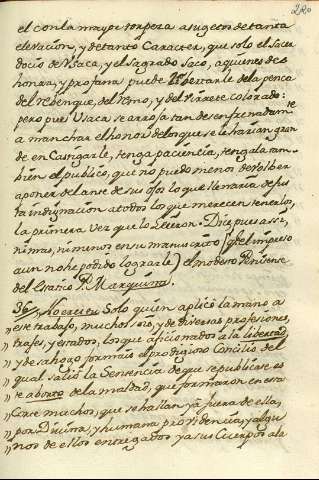 220
el con la mayor torpeza a sugetos de tanta
elevacion, y de tanto Caracter, que solo el Sacer
docio de Ysaca, y el sagrado Saco, aquienes des
honra, y profana puede libertarle de la penca
del Rebenque, del Remo, y del
pero pues Ysaca se arroja tan desenfrenadamte
a manchar el honor de los que se le harian gran
de en Castigarle, tenga paciencia, tengala tam
bien el publico, que no puedo menos de volber
aponer delante de sus ojos lo que llenaria de jus
ta indignacion a todos lo que merecen tenerlos,
la primera vez que lo leieron. Dice pues assi,
ni mas, ni menos en su manuscrito (qe el impreso
aun no he podido lograrle) el modesto Penitente
del Estatico P. Marquina.
36 No eres tu Solo quien aplicò la mano a
este trabajo, muchos son, y de diversas profesiones,
trajes, y estados, los que aficionados a la libertad
y desahogo formais el prodigioso Concilio del
qual saliò la Sentencia de que republicase es
te aborto de la maldad, que formaron en esta
Corte muchos, que se hallan ya fuera de ella,
por Divina, y humana providencia, y algu
nos de ellos entregados ya sus Cuerpos ala